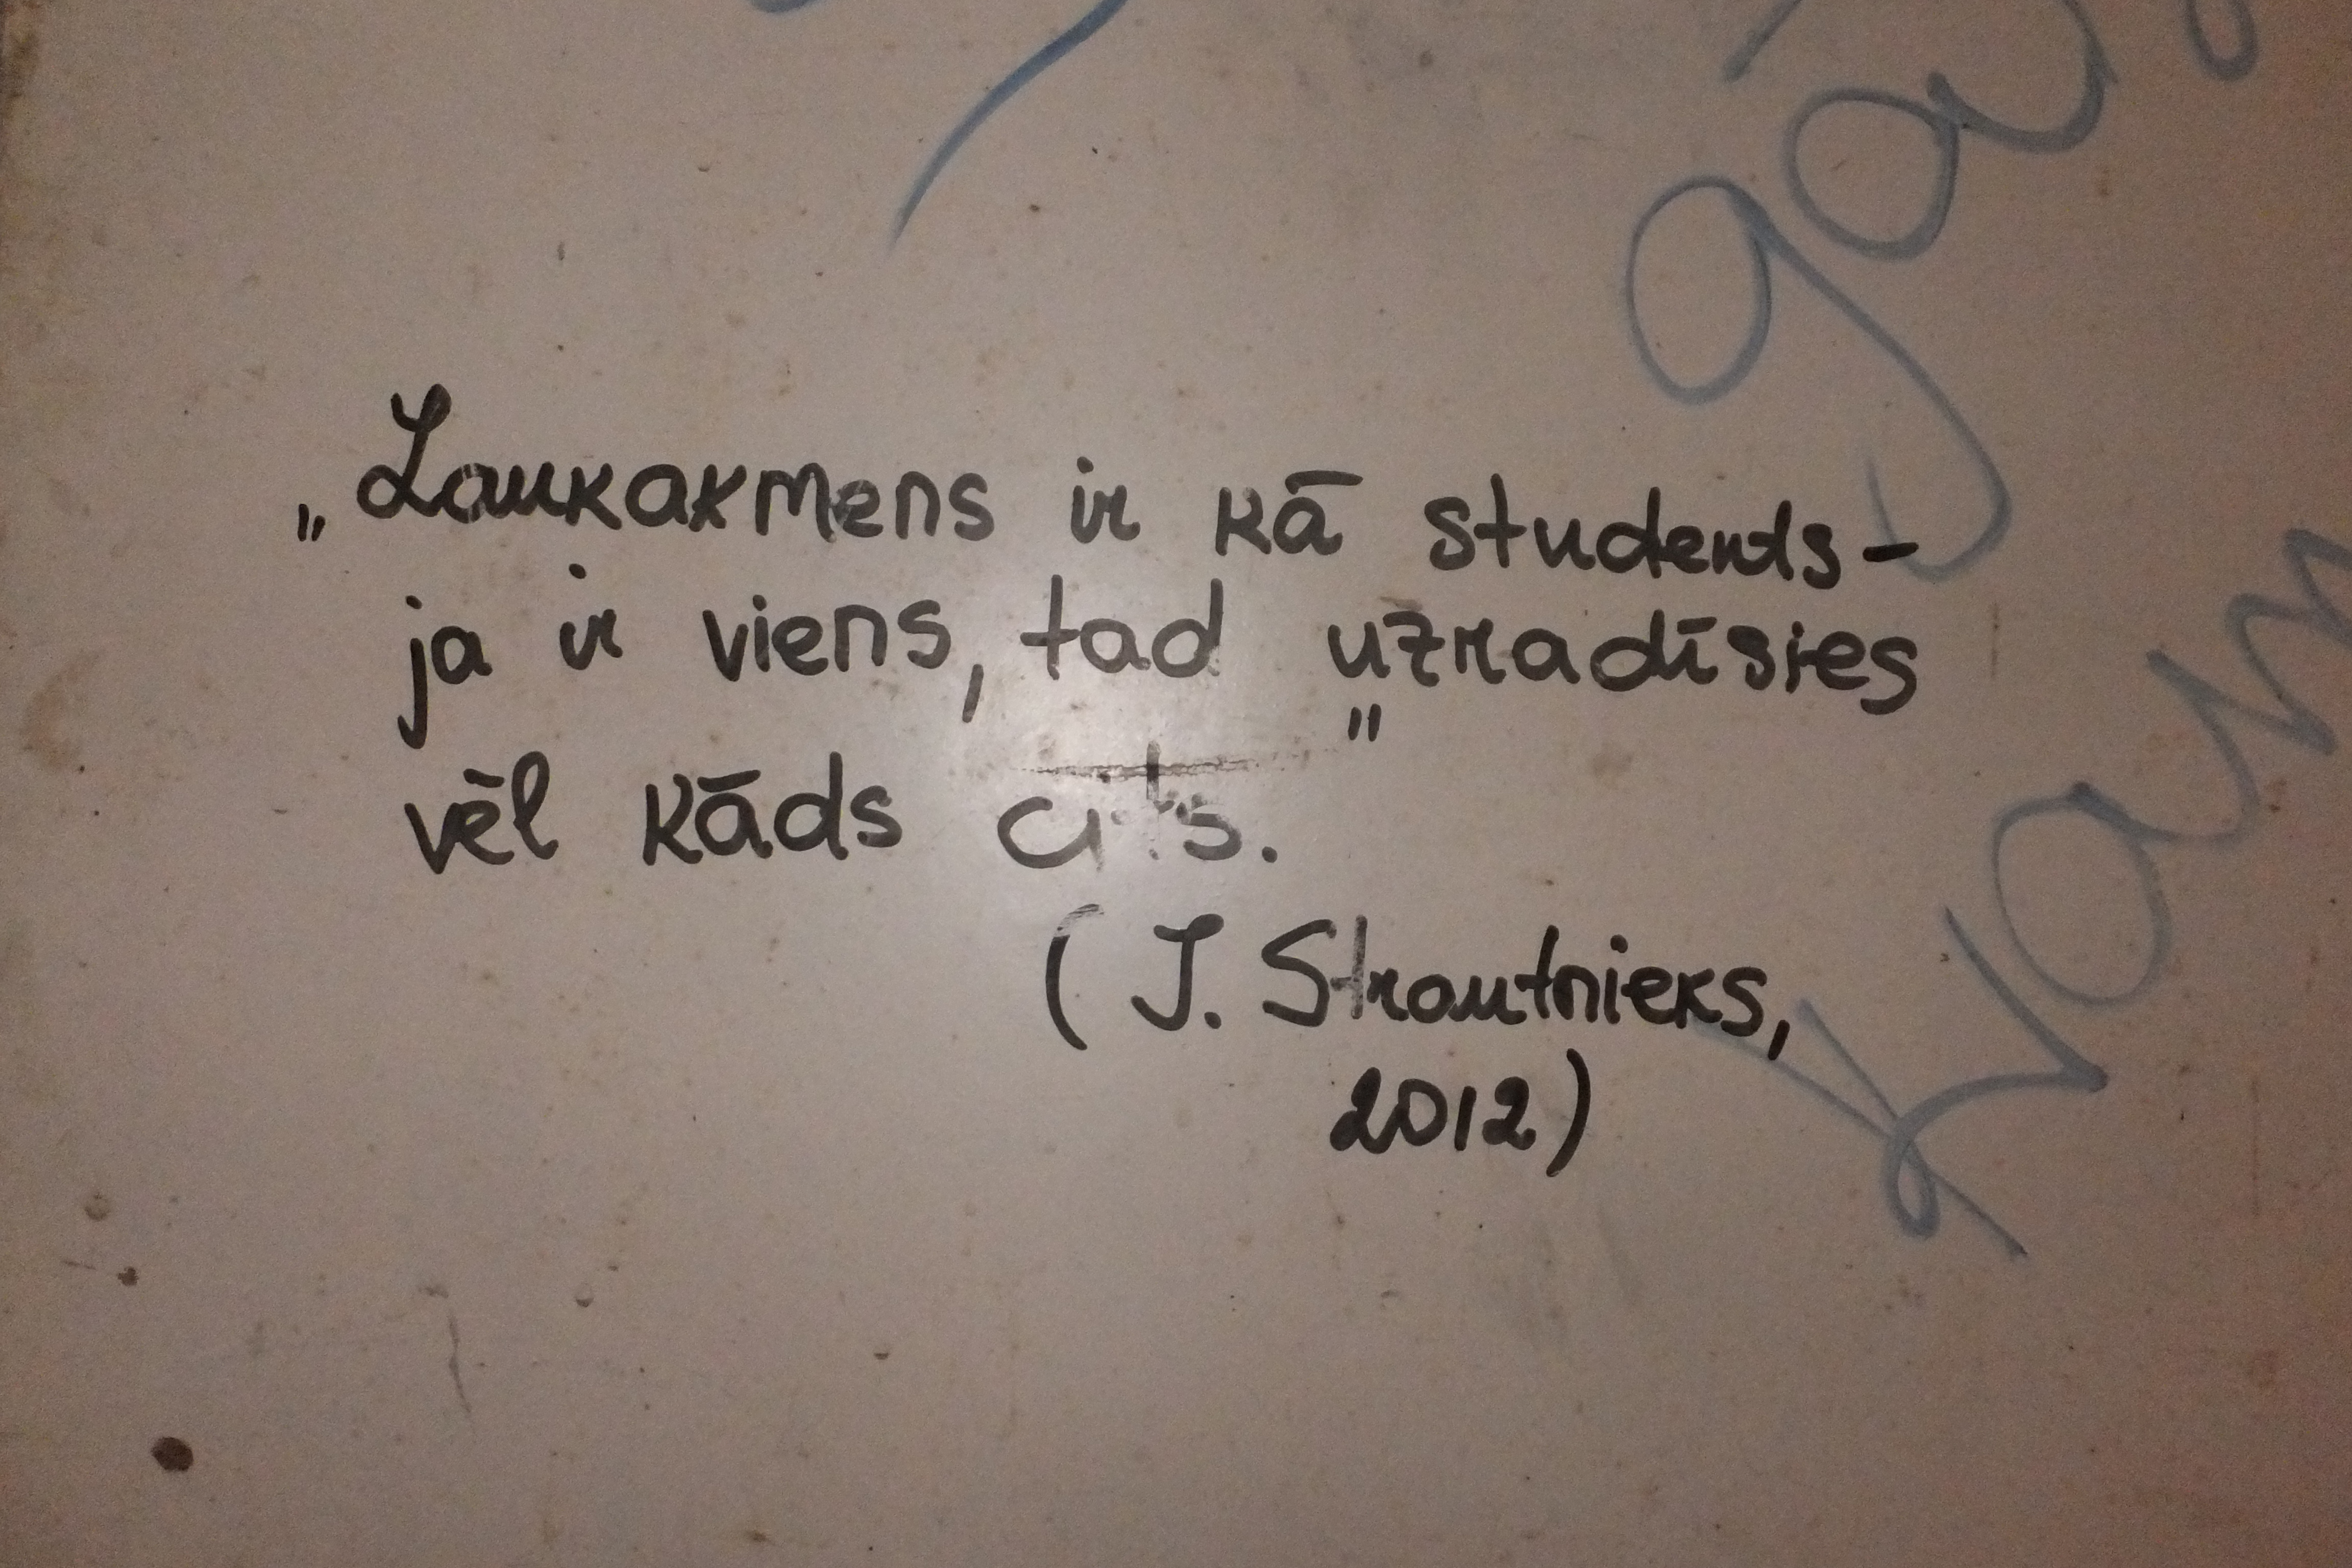 „Laukakmens ir kā students-
ja ir viens, tad uzradīsies
vēl kāds cits."
(J. Strautnieks,
2012)